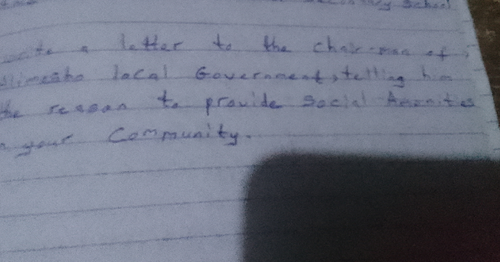 School
write a letter to the Chair-man of
Alimosho local Government, telling him
the reason to provide Social Amenities
in your Community.